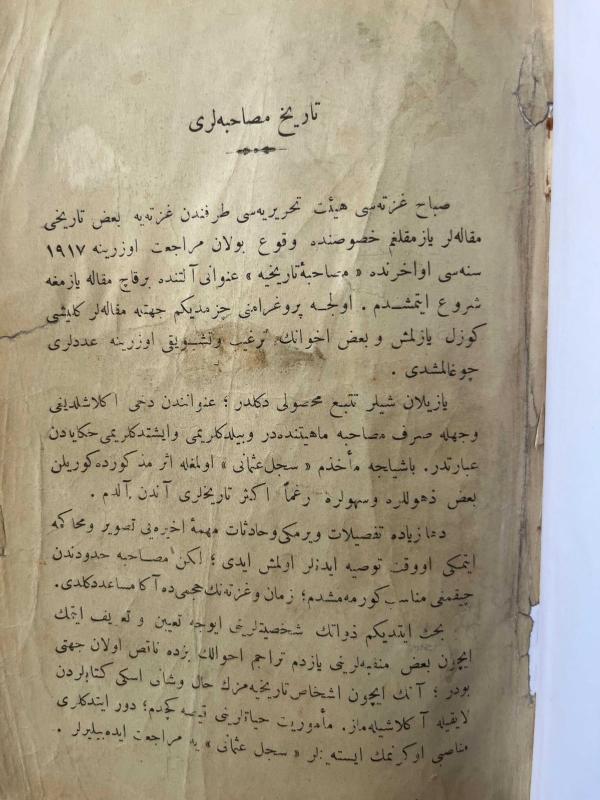 تاريخ مصاحبه‌لری
صباح غزته‌سی هيئت تحريريه‌سی طرفندن غزته‌يه بعض تاريخی
مقاله‌لر يازمقلغم خصوصنده وقوع بولان مراجعت اوزرينه ١٩١٧
سنه‌سی اواخرنده « مصاحبۀ تاريخيه » عنوانی آلتنده برقاچ مقاله يازمغه
شروع ايتمشدم . اولجه پروغرامنی چزمديكم جهتله مقاله‌لر كليشی
كوزل يازلمش و بعض اخوانك ترغيب وتشويقی اوزرينه عددلری
چوغالمشدی .
يازيلان شيلر تتبع محصولی دكلدر ؛ عنوانندن دخی آكلاشلديغی
وجهله صرف مصاحبه ماهيتنده‌در وبيلدكلريمی وايشتدكلريمی حكايه‌دن
عبارتدر . باشليجه مأخذم « سجل عثمانی » اولمغله اثر مذكورده كوريلن
بعض ذهوللره وسهولره رغماً اكثر تاريخلری آندن آلدم .
دها زياده تفصيلات ويرمكی وحادثات مهمۀ اخيره‌يی تصوير ومحاكمه
ايتمكی اووقت توصيه ايدنلر اولمش ايدی ؛ لكن مصاحبه حدودندن
چيقمغی مناسب كورمه‌مشدم ؛ زمان و غزته‌نك حجمی ده آكا مساعد دكلدی .
بحث ايتديكم ذواتك شخصيتلرينی ايوجه تعيين و تعريف ايتمك
ايچون بعض منقبه‌لرينی يازدم تراجم احوالك بزده ناقص اولان جهتی
بودر ؛ آنك ايچون اشخاص تاريخيه‌مزك حال وشانی اسكی كتابلردن
لايقيله آكلاشيله‌ماز . مأموريت حياتلرينی قيصه كچدم ؛ دور ايتدكلری
مناصبی اوكرنمك ايسته‌ينلر « سجل عثمانی » يه مراجعت ايده‌بيليرلر .